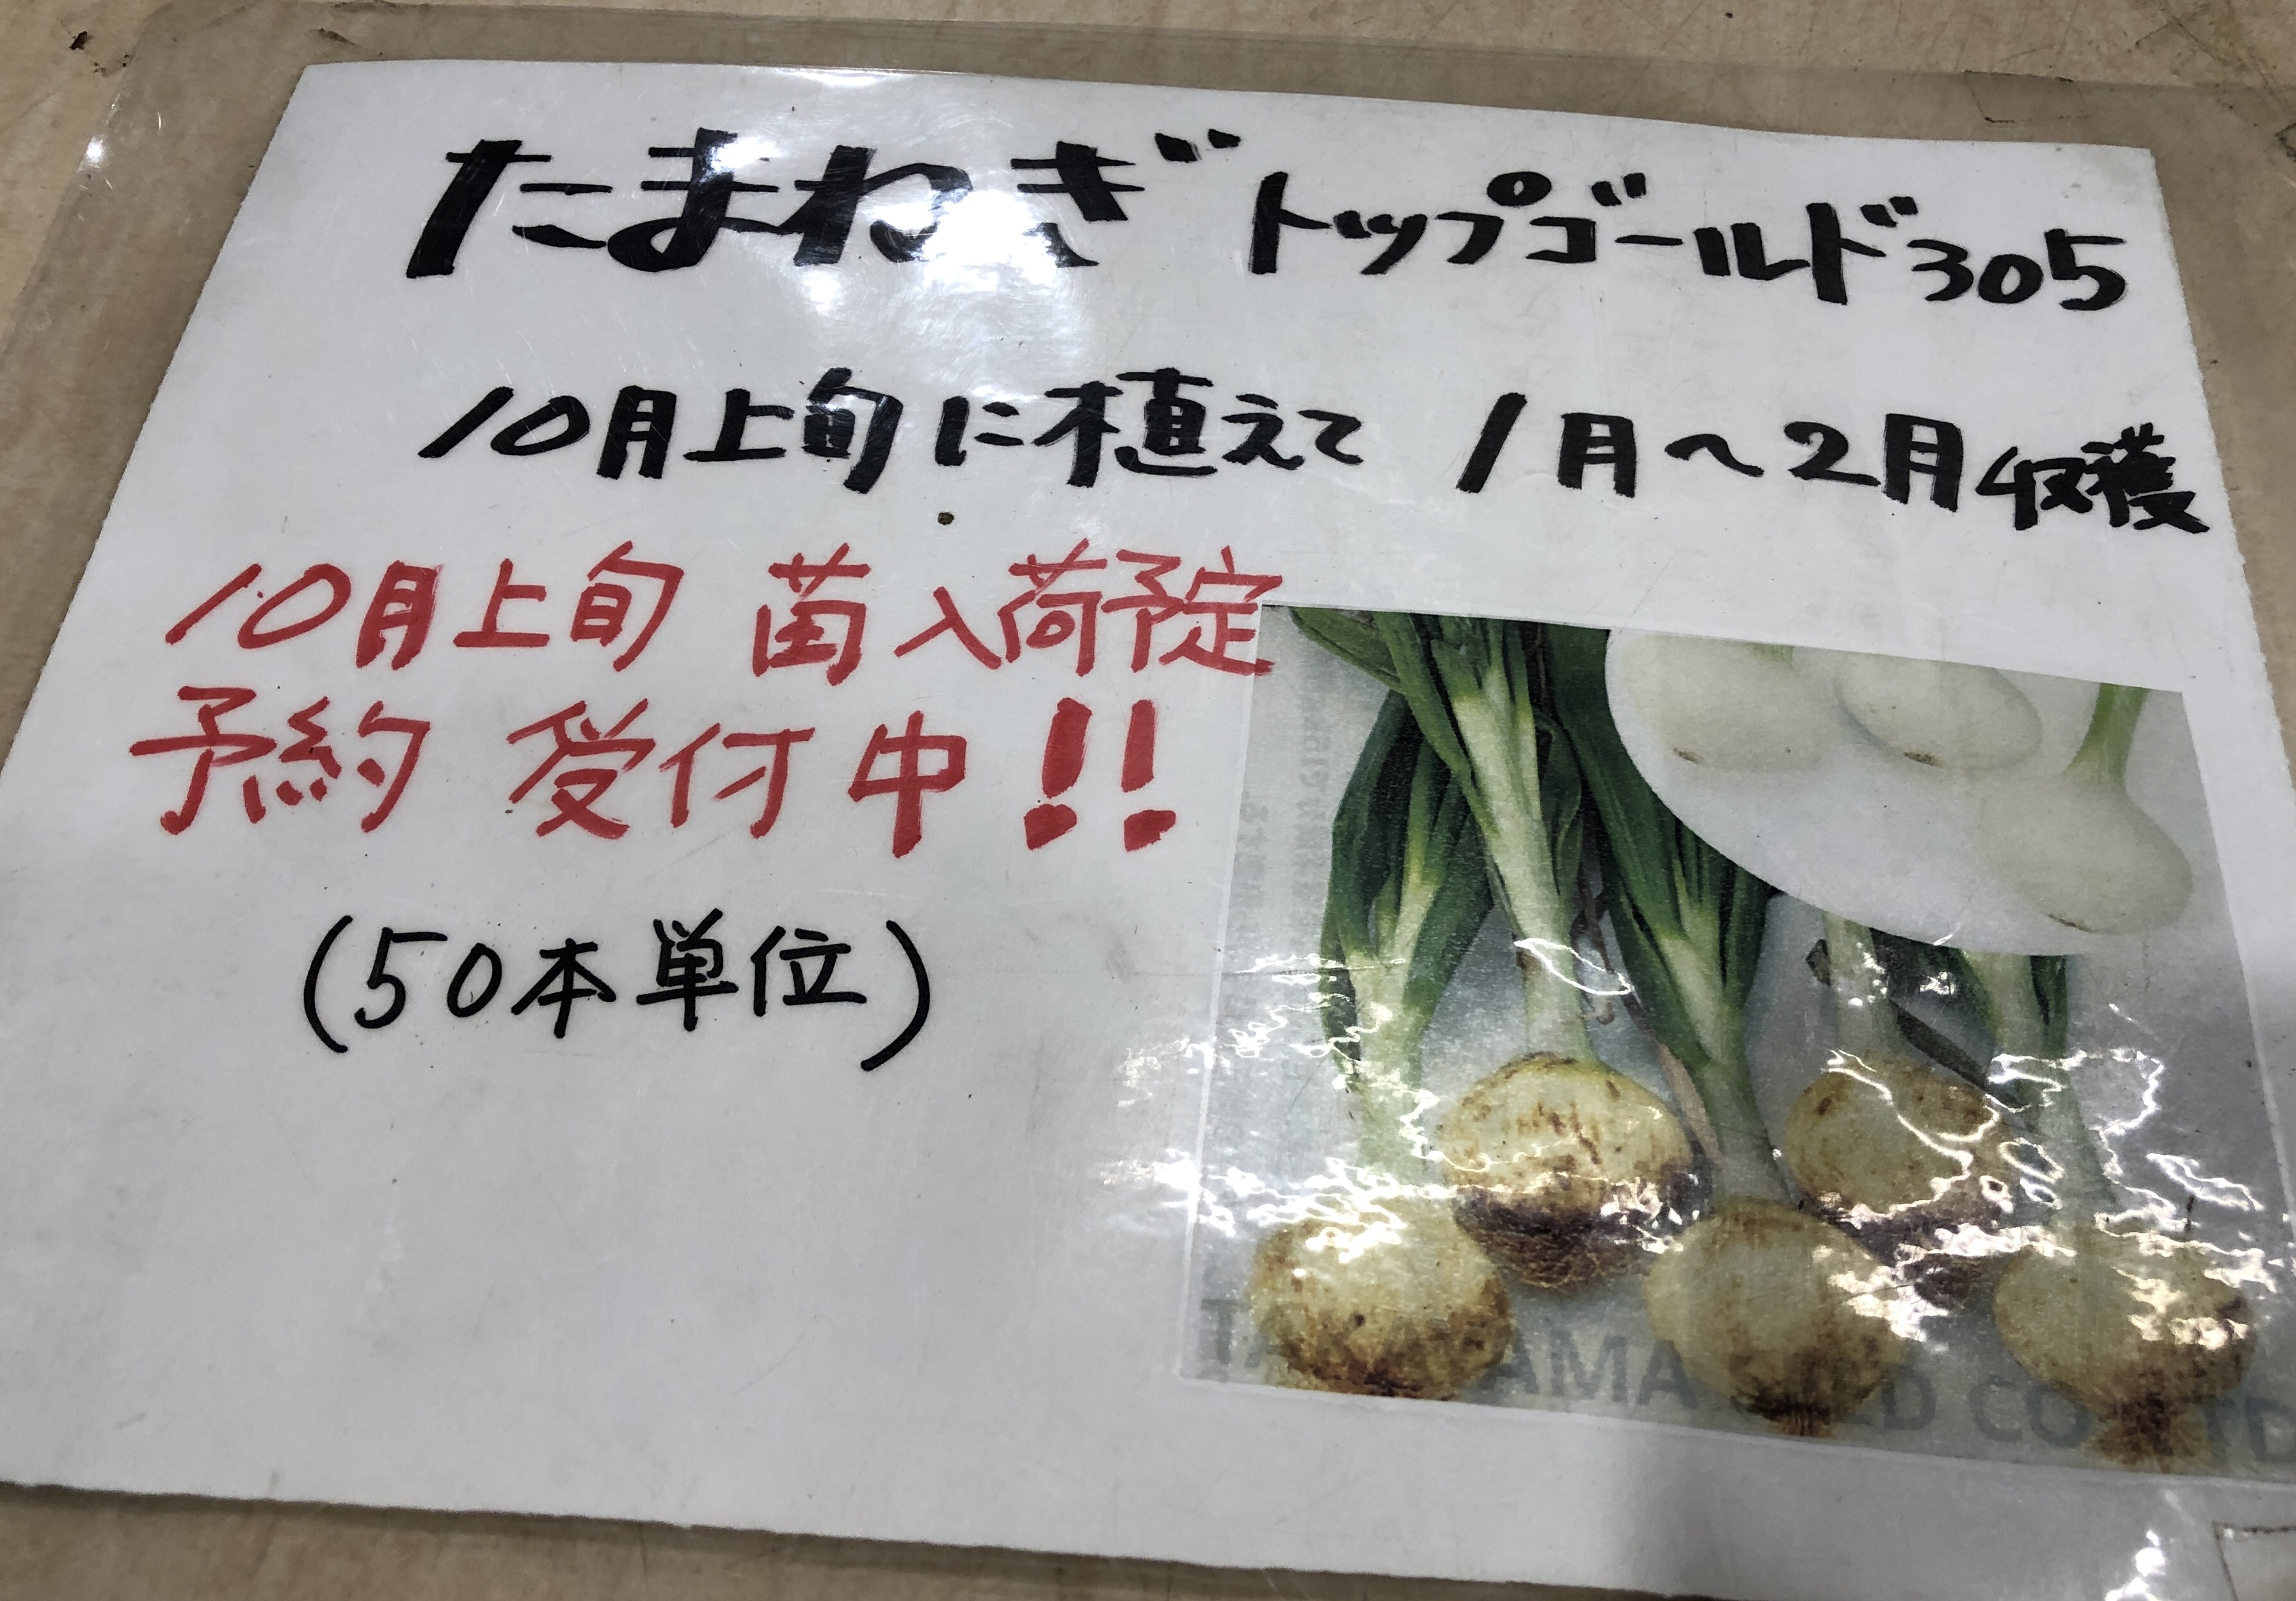 たまねぎ トップゴールド305
10月上旬に植えて 1月~2月収穫
10月上旬 苗入荷予定
予約 受付中!!
(50本単位)